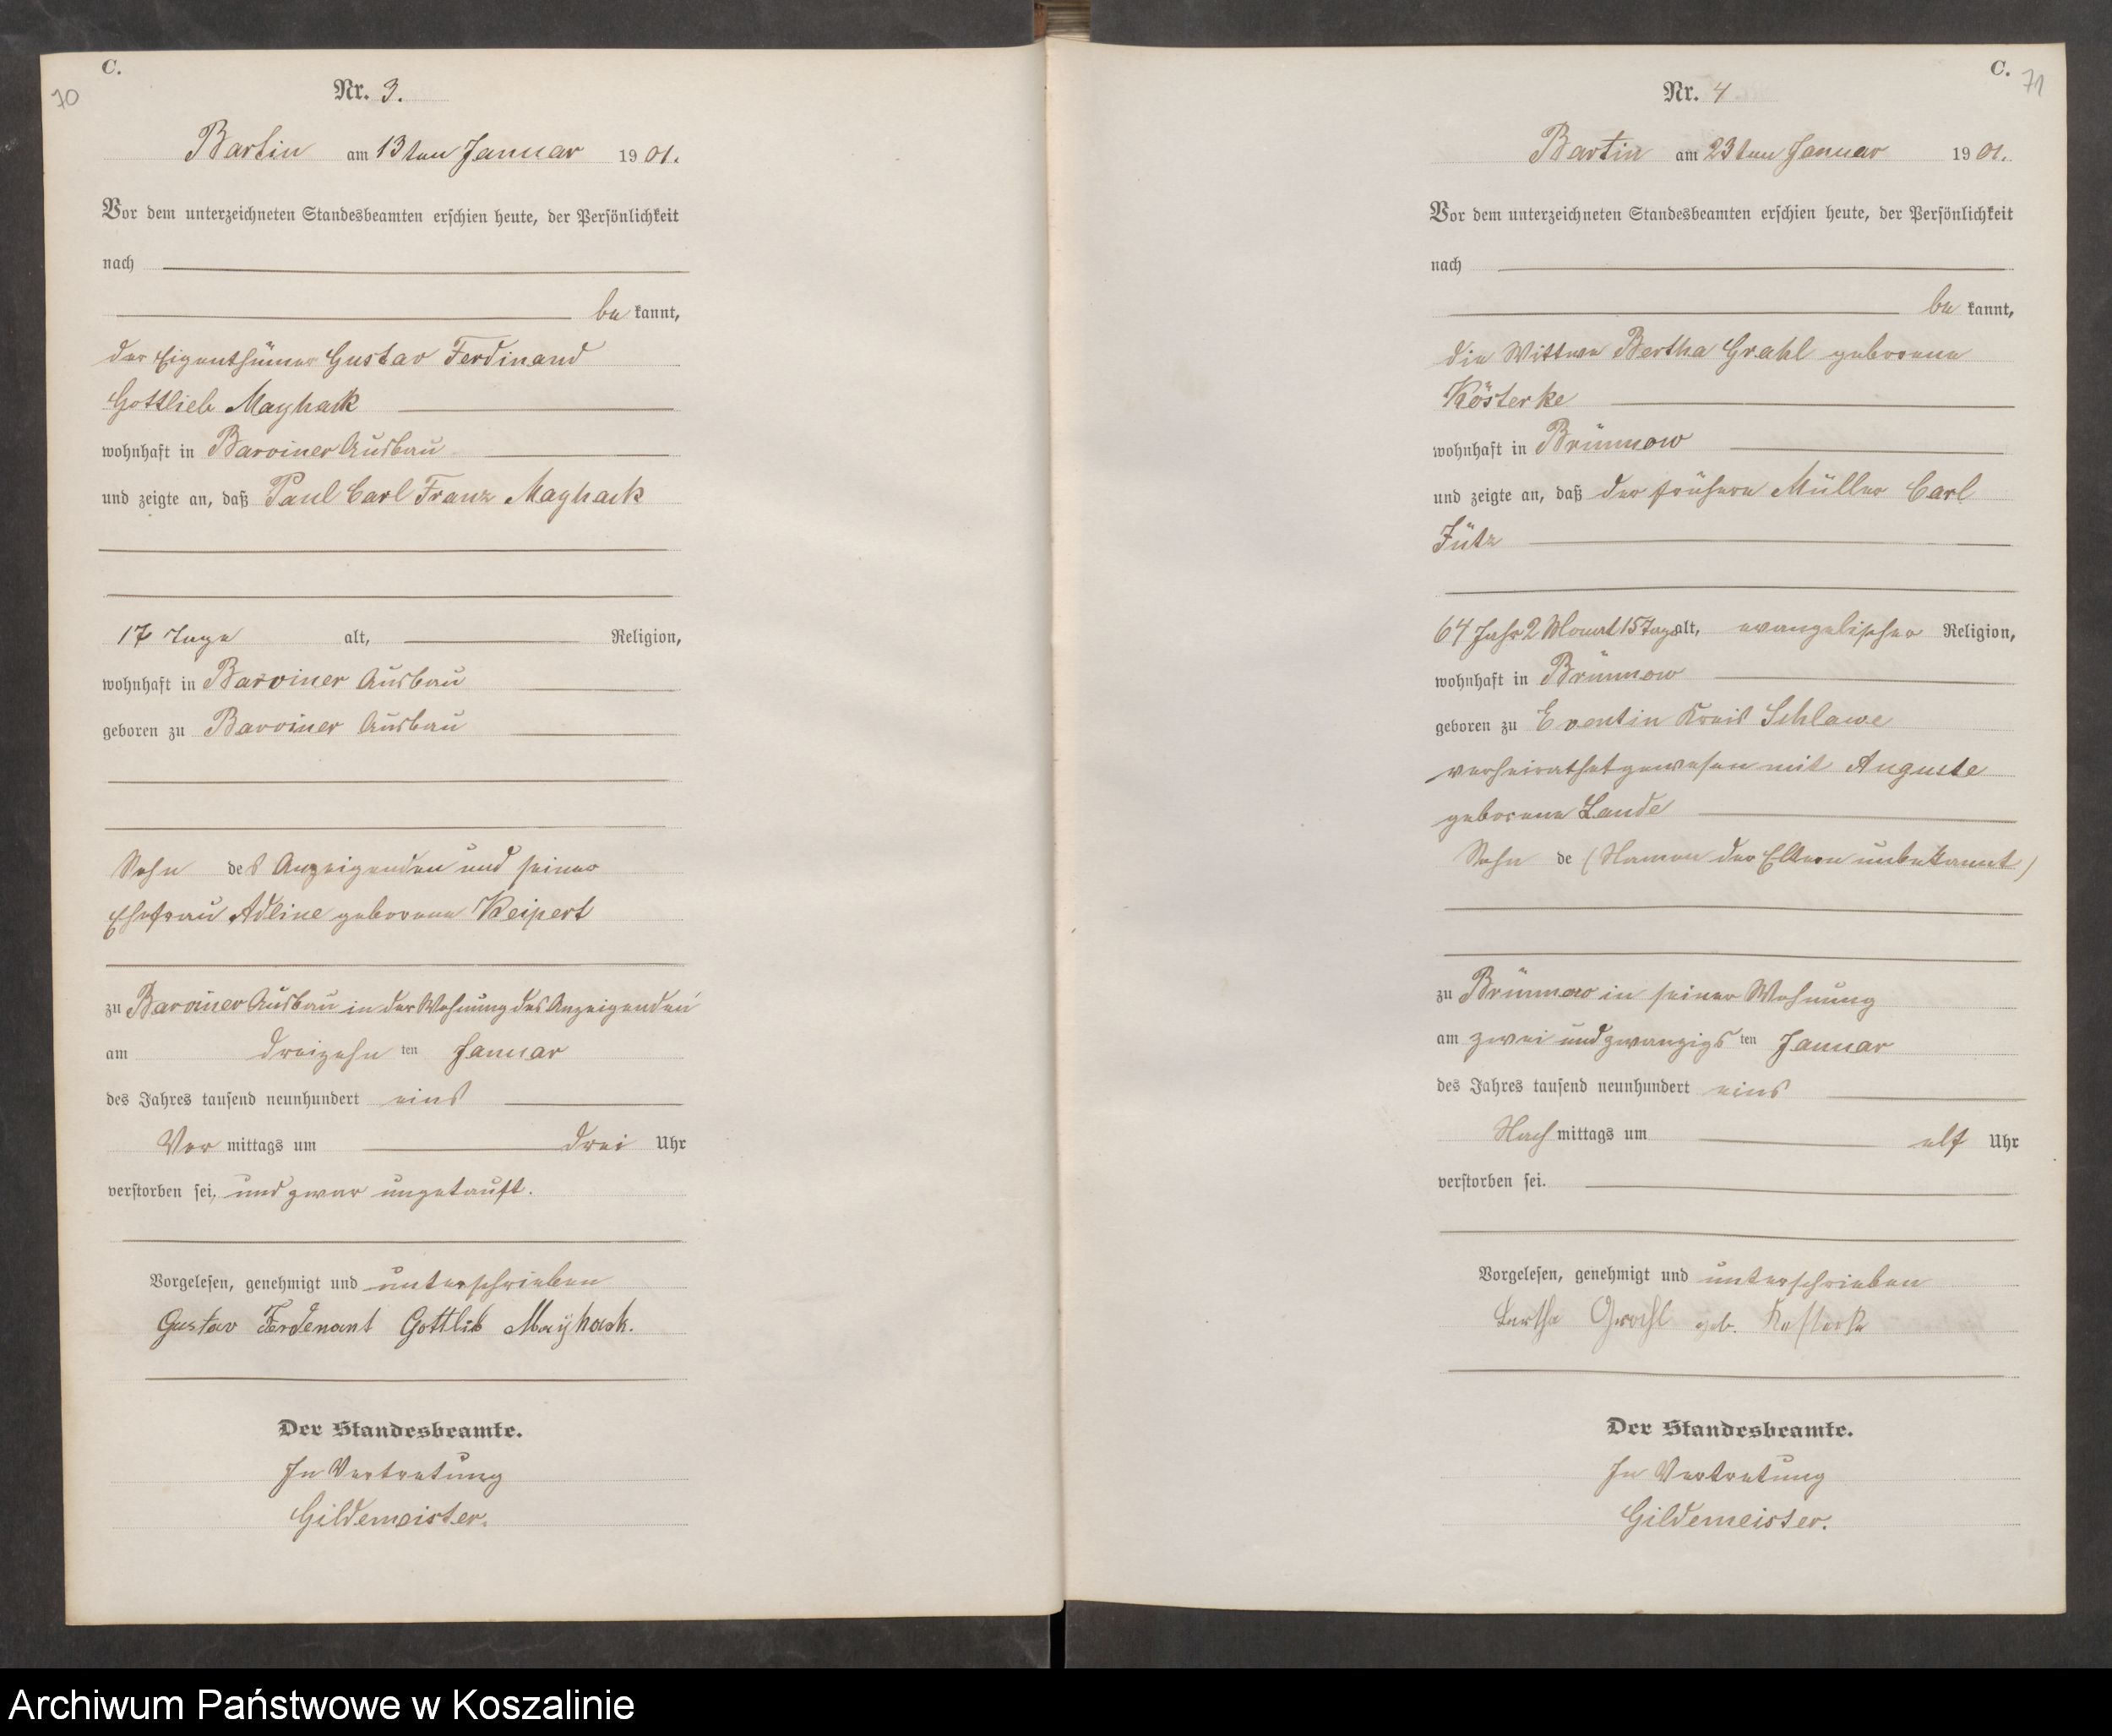 C.
70
Nr. 3.
Bartin am 13ten Januar 1901.
Vor dem unterzeichneten Standesbeamten erschien heute, der Persönlichkeit
nach
be kannt,
der Eigenthümer Gustav Ferdinand
Gottlieb Mayhack
wohnhaft in Barviner Ausbau
und zeigte an, daß Paul Carl Franz Mayhack
17 Tage alt, Religion,
wohnhaft in Barviner Ausbau
geboren zu Barviner Ausbau
Sohn des Anzeigenden und seiner
Ehefrau Adline geborene Keipert
zu Barviner Ausbau in der Wohnung des Anzeigenden
am dreizehn ten Januar
des Jahres tausend neunhundert eins
Vor mittags um drei Uhr
verstorben sei, und zwar ungetauft.
Vorgelesen, genehmigt und unterschrieben
Gustav Ferdenant Gottlib Mayhack.
Der Standesbeamte.
In Vertretung
Gildemeister.
C.
71
Nr. 4
Bartin am 23ten Januar 1901.
Vor dem unterzeichneten Standesbeamten erschien heute, der Persönlichkeit
nach
be kannt,
die Wittwe Bertha Grahl geborene
Kösterke
wohnhaft in Brünnow
und zeigte an, daß der frühere Müller Carl
Jütz
64 Jahr 2 Monat 15 Tage alt, evangelischer Religion,
wohnhaft in Brünnow
geboren zu Eventin Kreis Schlawe
verheirathet gewesen mit Auguste
geborene Lande
Sohn de (Namen der Eltern unbekannt)
zu Brünnow in seiner Wohnung
am zwei und zwanzigs ten Januar
des Jahres tausend neunhundert eins
Nach mittags um elf Uhr
verstorben sei.
Vorgelesen, genehmigt und unterschrieben
Bertha Grahl geb. Kösterke
Der Standesbeamte.
In Vertretung
Gildemeister.
Archiwum Państwowe w Koszalinie